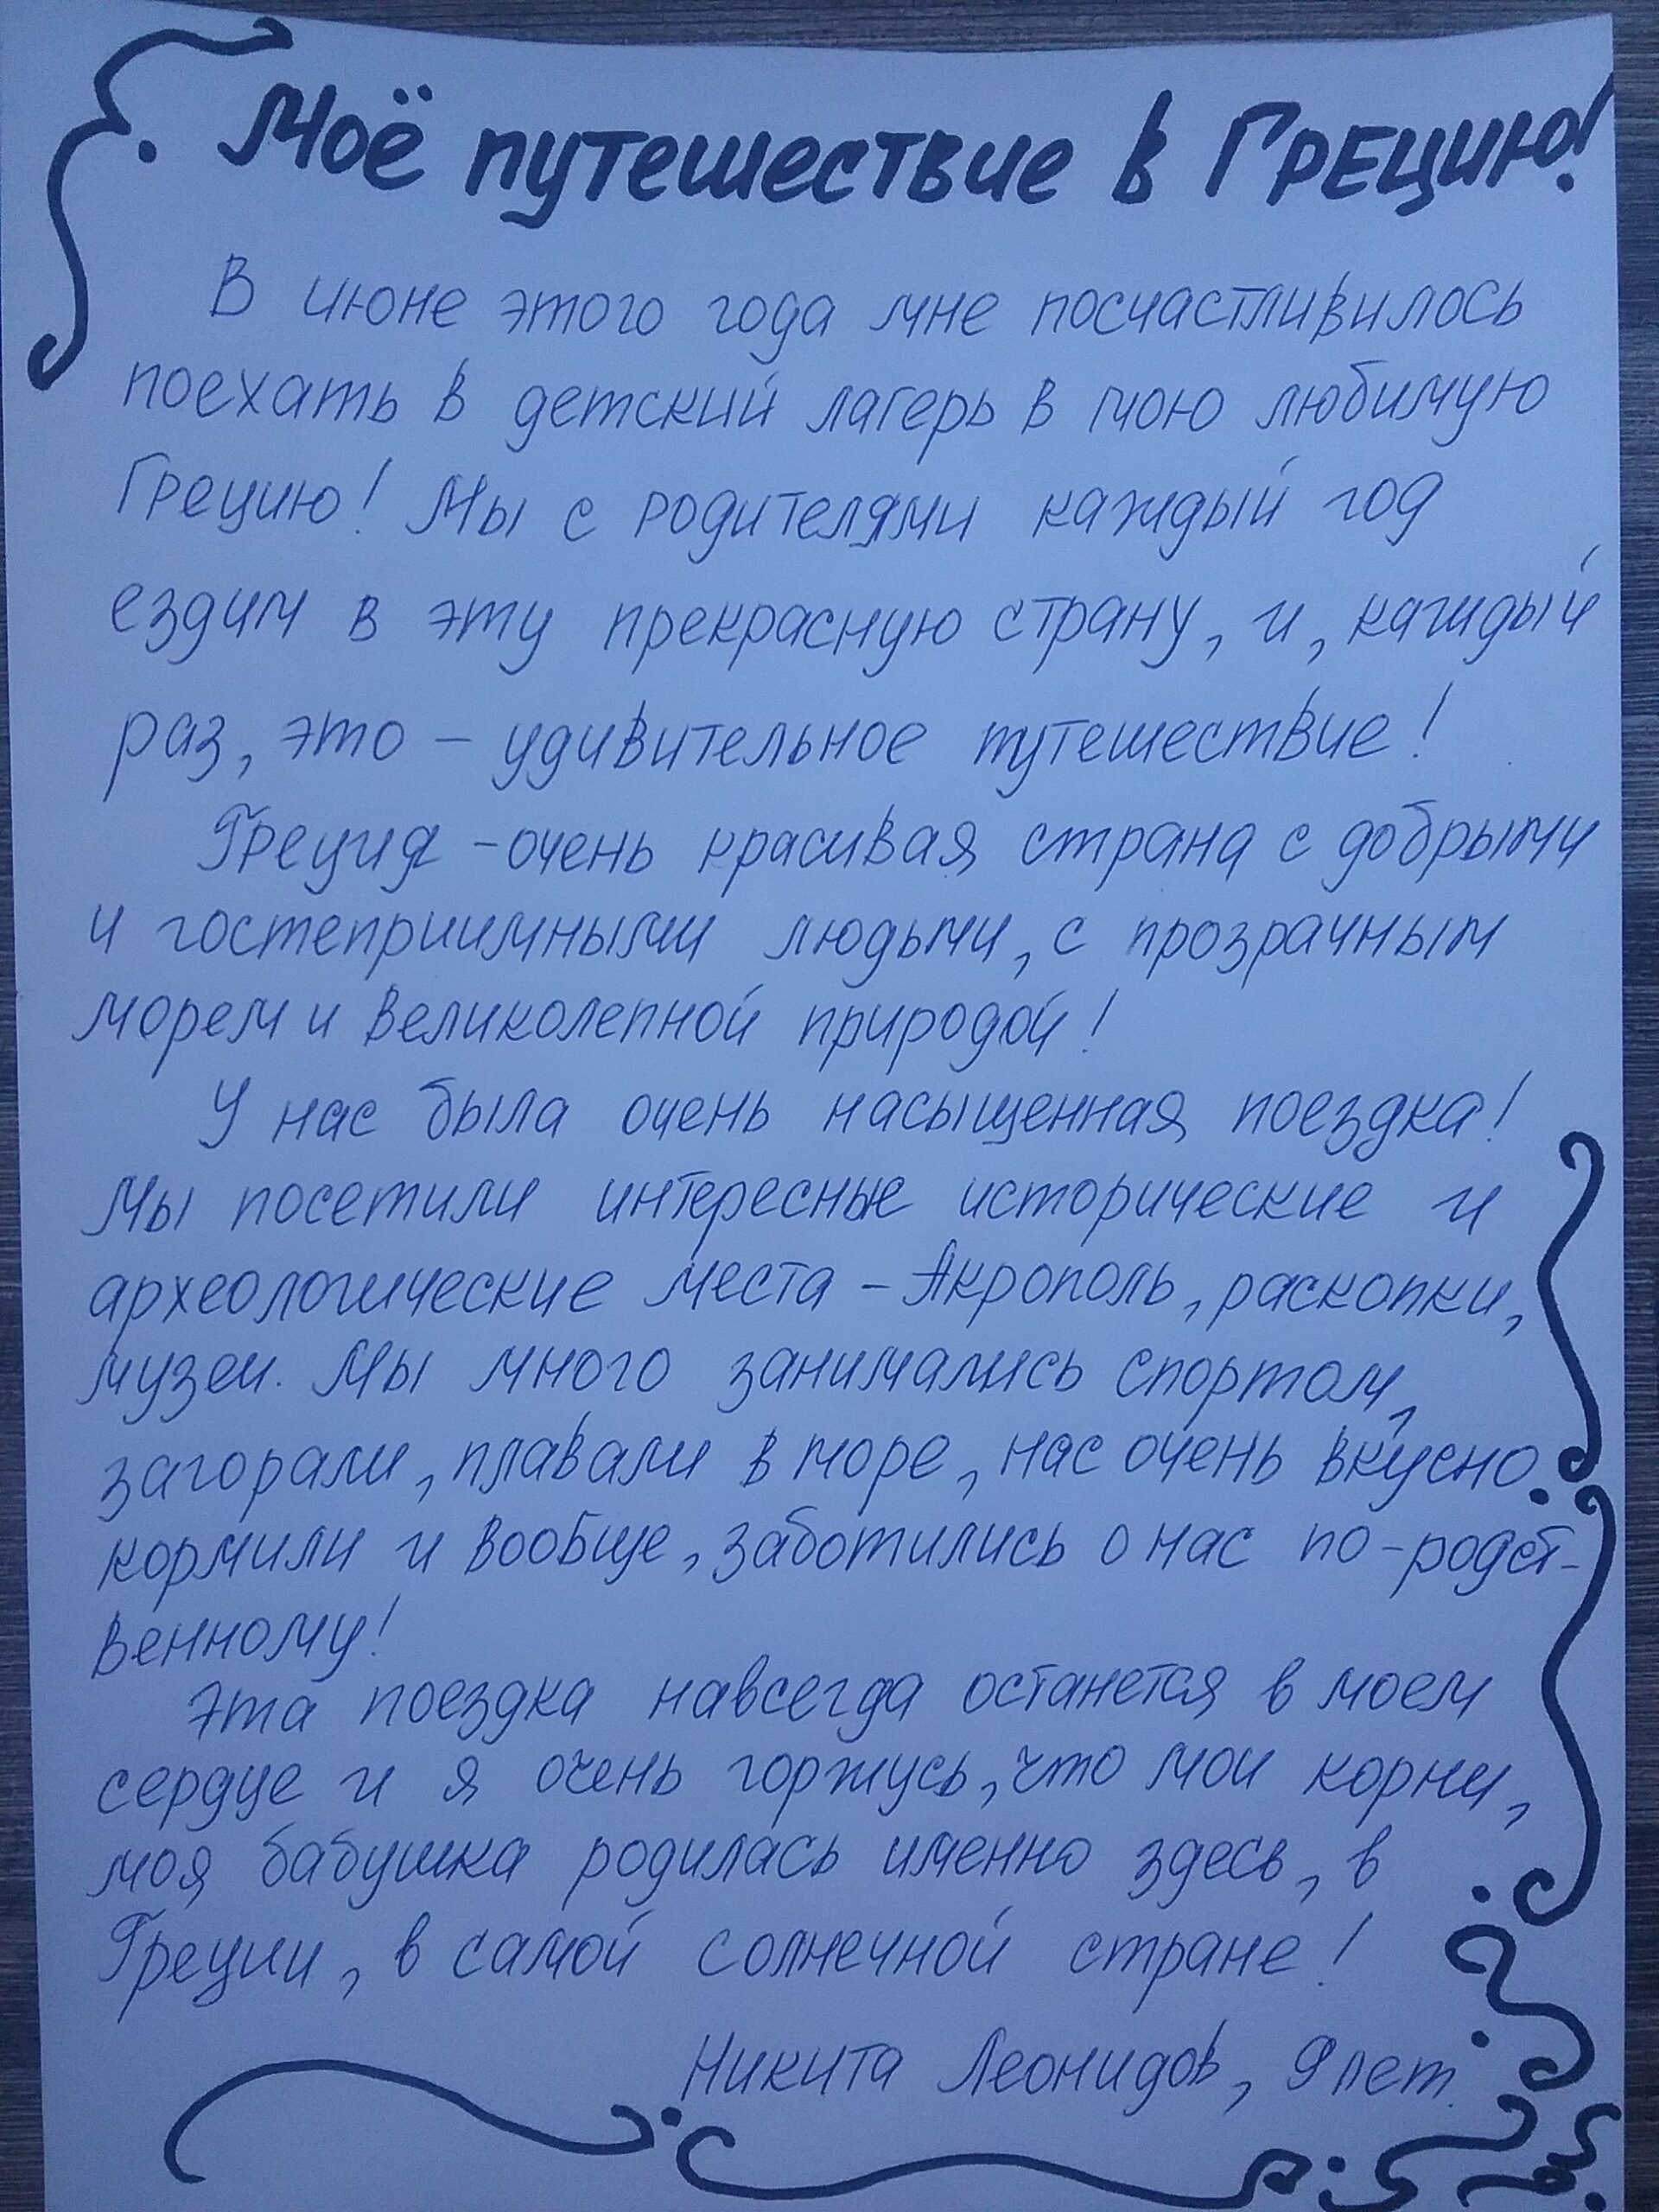 Моё путешествие в Грецию!
В июне этого года мне посчастливилось
поехать в детский лагерь в мою любимую
Грецию! Мы с родителями каждый год
ездим в эту прекрасную страну, и, каждый
раз, это – удивительное путешествие!
Греция – очень красивая страна с добрыми
и гостеприимными людьми, с прозрачным
морем и великолепной природой!
У нас была очень насыщенная поездка!
Мы посетили интересные исторические и
археологические места – Акрополь, раскопки,
музеи. Мы много занимались спортом,
загорали, плавали в море, нас очень вкусно
кормили и вообще, заботились о нас по-родст-
венному!
Эта поездка навсегда останется в моем
сердце и я очень горжусь, что мои корни,
моя бабушка родилась именно здесь, в
Греции, в самой солнечной стране!
Никита Леонидов, 9 лет.